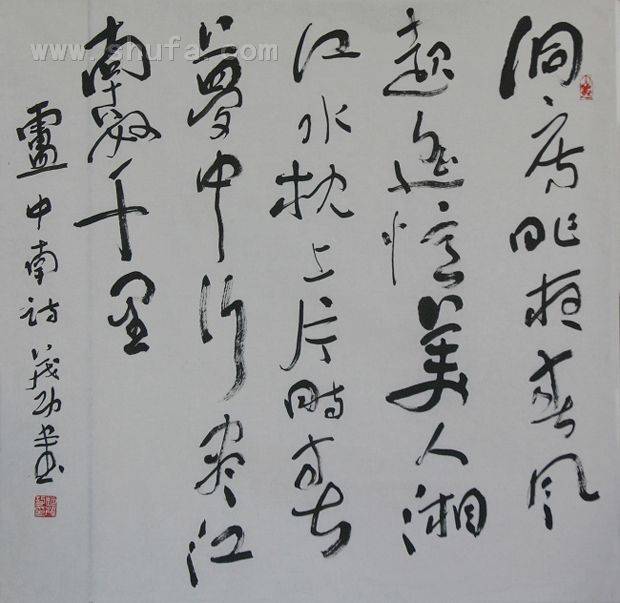 www.shufa.com
洞房昨夜春风
起遥憶美人湘
江水枕上片時春
夢中行尽江
南数千里
盧中南诗茂功書